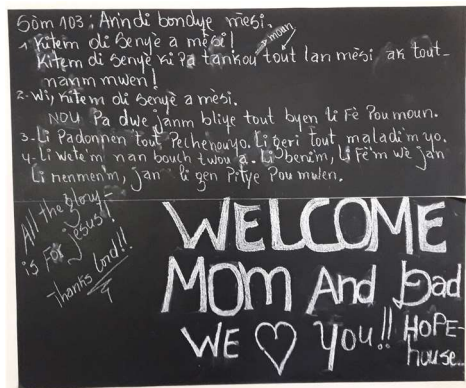 Sòm 103 : An n di bondye mèsi.
1 Kitem di Senyè a mèsi!
Kitem di senyè ki Pa tankou tout lan mèsi ak tout
nanm mwen!
2- Wi, Kitem di Senyè a mèsi.
NOU Pa dwe janm bliye tout byen li Fè Pou moun.
3- Li Padonnen tout Pechenouyo. Li geri tout maladi'm yo.
4- Li wete'm nan bouch twou a. Li beni'm, Li Fè'm wè jan
li renmen'm, jan li gen Pitye Pou mwen.
All the glory
is For Jesus!!
Thanks Lord!!
WELCOME
MOM And Dad
WE ♡ You!! HOPE-
house...